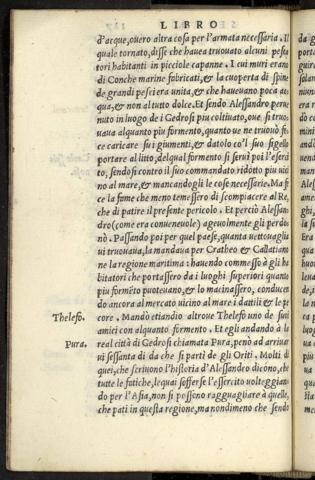 LIBRO
d'acque, ouero altra cosa per l'armata necessaria. Il
quale tornato, disse che hauea truouato alcuni pesca
tori habitanti in picciole capanne. I cui muri erano
di Conche marine fabricati, & la cuoperta di spine
de grandi pesci era unita, & che haueuano poca ac
qua, & non al tutto dolce. Et sendo Alessandro perue
nuto in luogo de i Gedrosi piu coltiuato, oue si truo
uaua alquanto piu formento, quanto ue ne truouò fe
ce caricare su i giumenti, & datolo co'l suo sigello
portare al litto, delqual formento si seruì poi l'eserci
to, sendosi contro il suo commandato ridotto piu uici
no al mare, & mancandogli le cose necessarie. Ma fe
ce la fame che meno temessero di scompiacere al Re,
che di patire il presente pericolo. Et perciò Alessan
dro (come era conueneuole) ageuolmente gli perdo
nò. Passando poi per quel paese, quanta uettouaglia
ui truouaua, la mandaua per Cratheo & Callatiano
ne la regione maritima: hauendo commesso à gli ha
bitatori che portassero da i luoghi superiori quanto
piu formẽto poteuano, & lo macinassero, conducen
do ancora al mercato uicino al mare i dattili & le pe
Thelefo.
core. Mandò etiandio altroue Thelefo uno de suoi
amici con alquanto formento. Et egli andando à la
Pura.
real città di Gedrosi chiamata Pura, penò ad arriuar
ui sessanta di da che si partì de gli Oriti. Molti di
quei, che scriuono l'historia d'Alessandro dicono, che
tutte le fatiche, le quai sofferse l'essercito uolteggian
do per l'Asia, non si possono ragguagliare à quelle,
che patì in questa regione, ma nondimeno che sendo